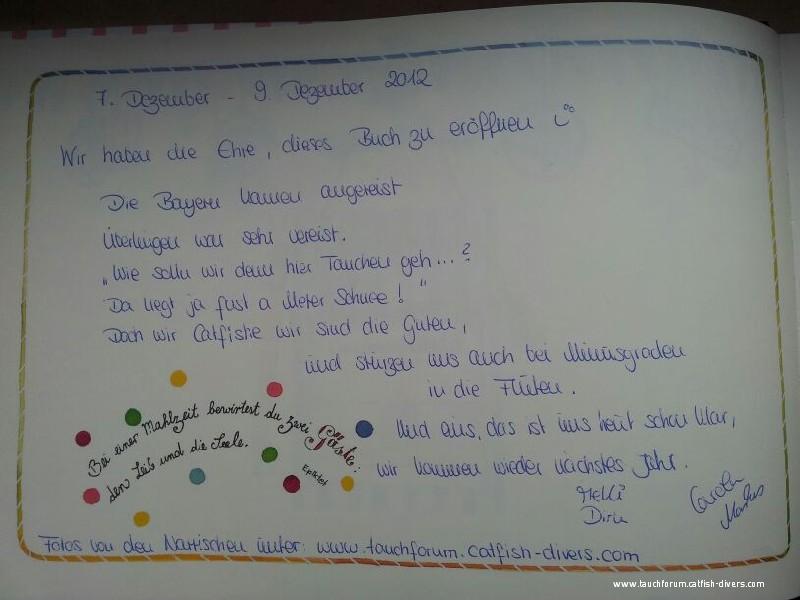 7. Dezember - 9. Dezember 2012
Wir haben die Ehre, dieses Buch zu eröffnen
Die Bayern kamen angereist
Überlingen war sehr vereist.
„Wie solln wir denn hier Tauchen geh...?
Da liegt ja fast a Meter Schnee!"
Doch wir Catfishe wir sind die Guten,
und stürzen uns auch bei Minusgraden
in die Fluten.
Und eins, das ist uns heut schon klar,
wir kommen wieder nächstes Jahr.
Melli
Dirk
Carola
Markus
Bei einer Mahlzeit bewirtest du zwei Gäste:
den Leib und die Seele.
Epiktet
Fotos von den Narrischen unter: www.tauchforum.catfish-divers.com
www.tauchforum.catfish-divers.com